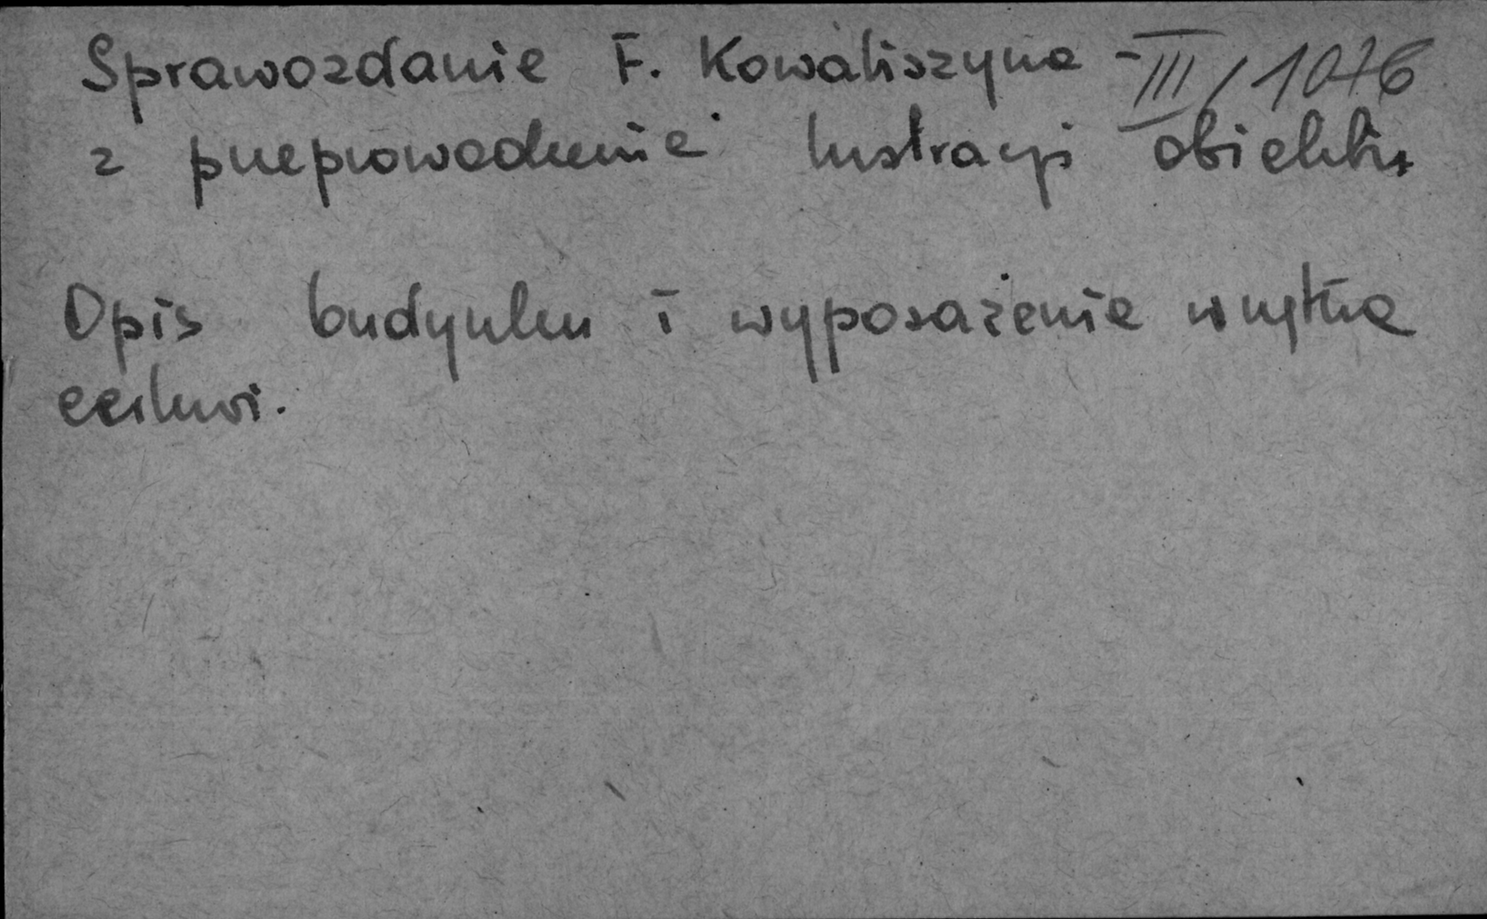 Sprawozdanie F. Kowaliszyna - III/1076
z przeprowadzenia lustracji obiektu
Opis budynku i wyposażenie wnętrza
cerkwi.